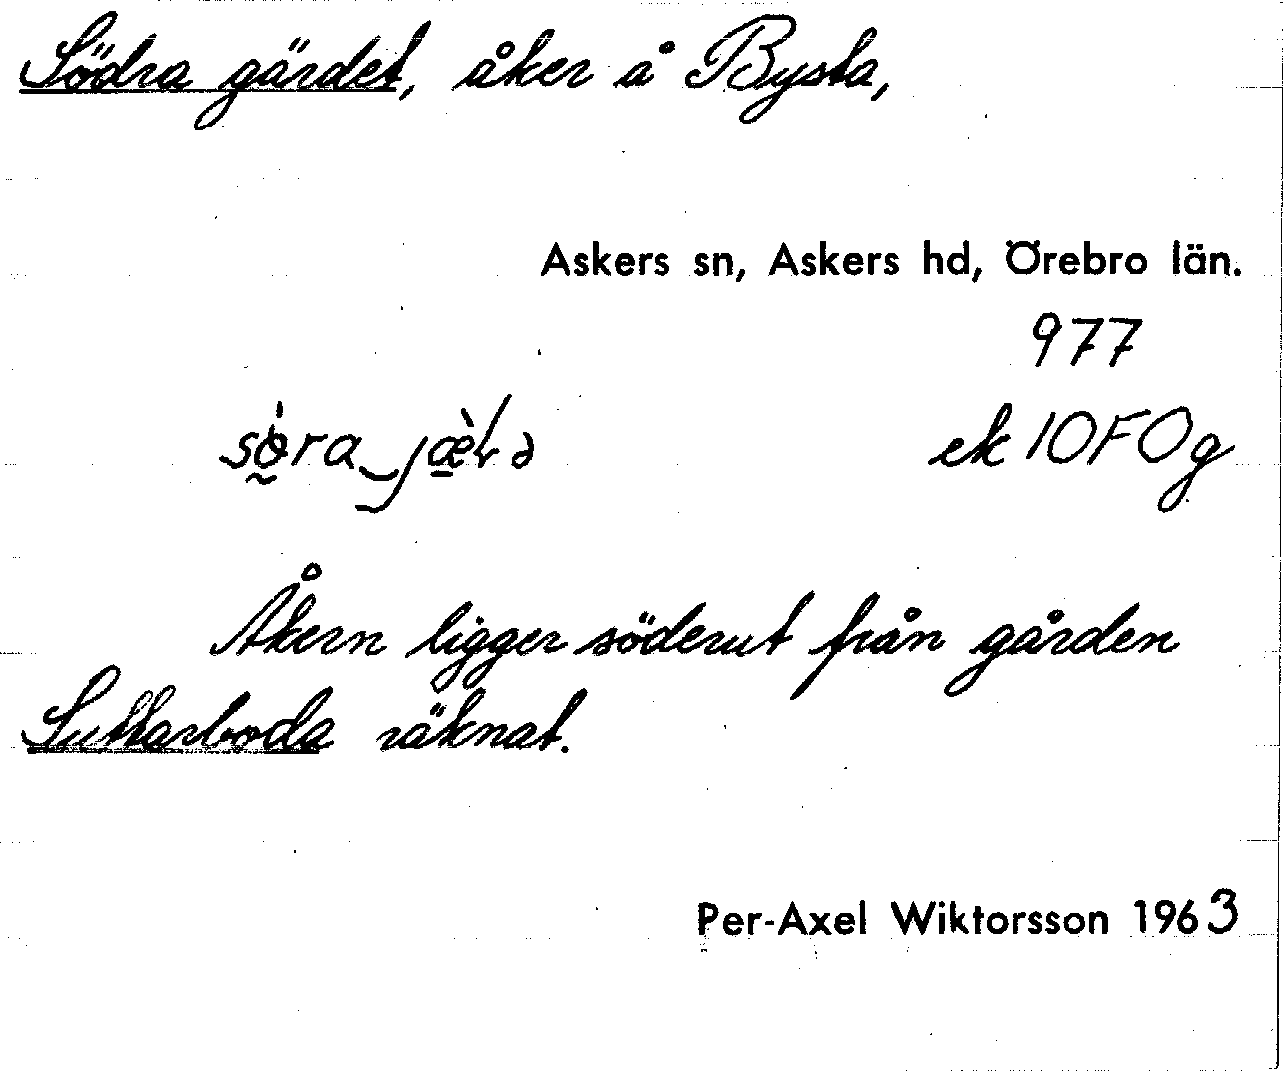 Södra gärdet, åker å Bysta,
Askers sn, Askers hd, Örebro län.
977
ek 10F0g
Åkern ligger söderut från gården
Suttarboda räknat.
Per-Axel Wiktorsson 1963